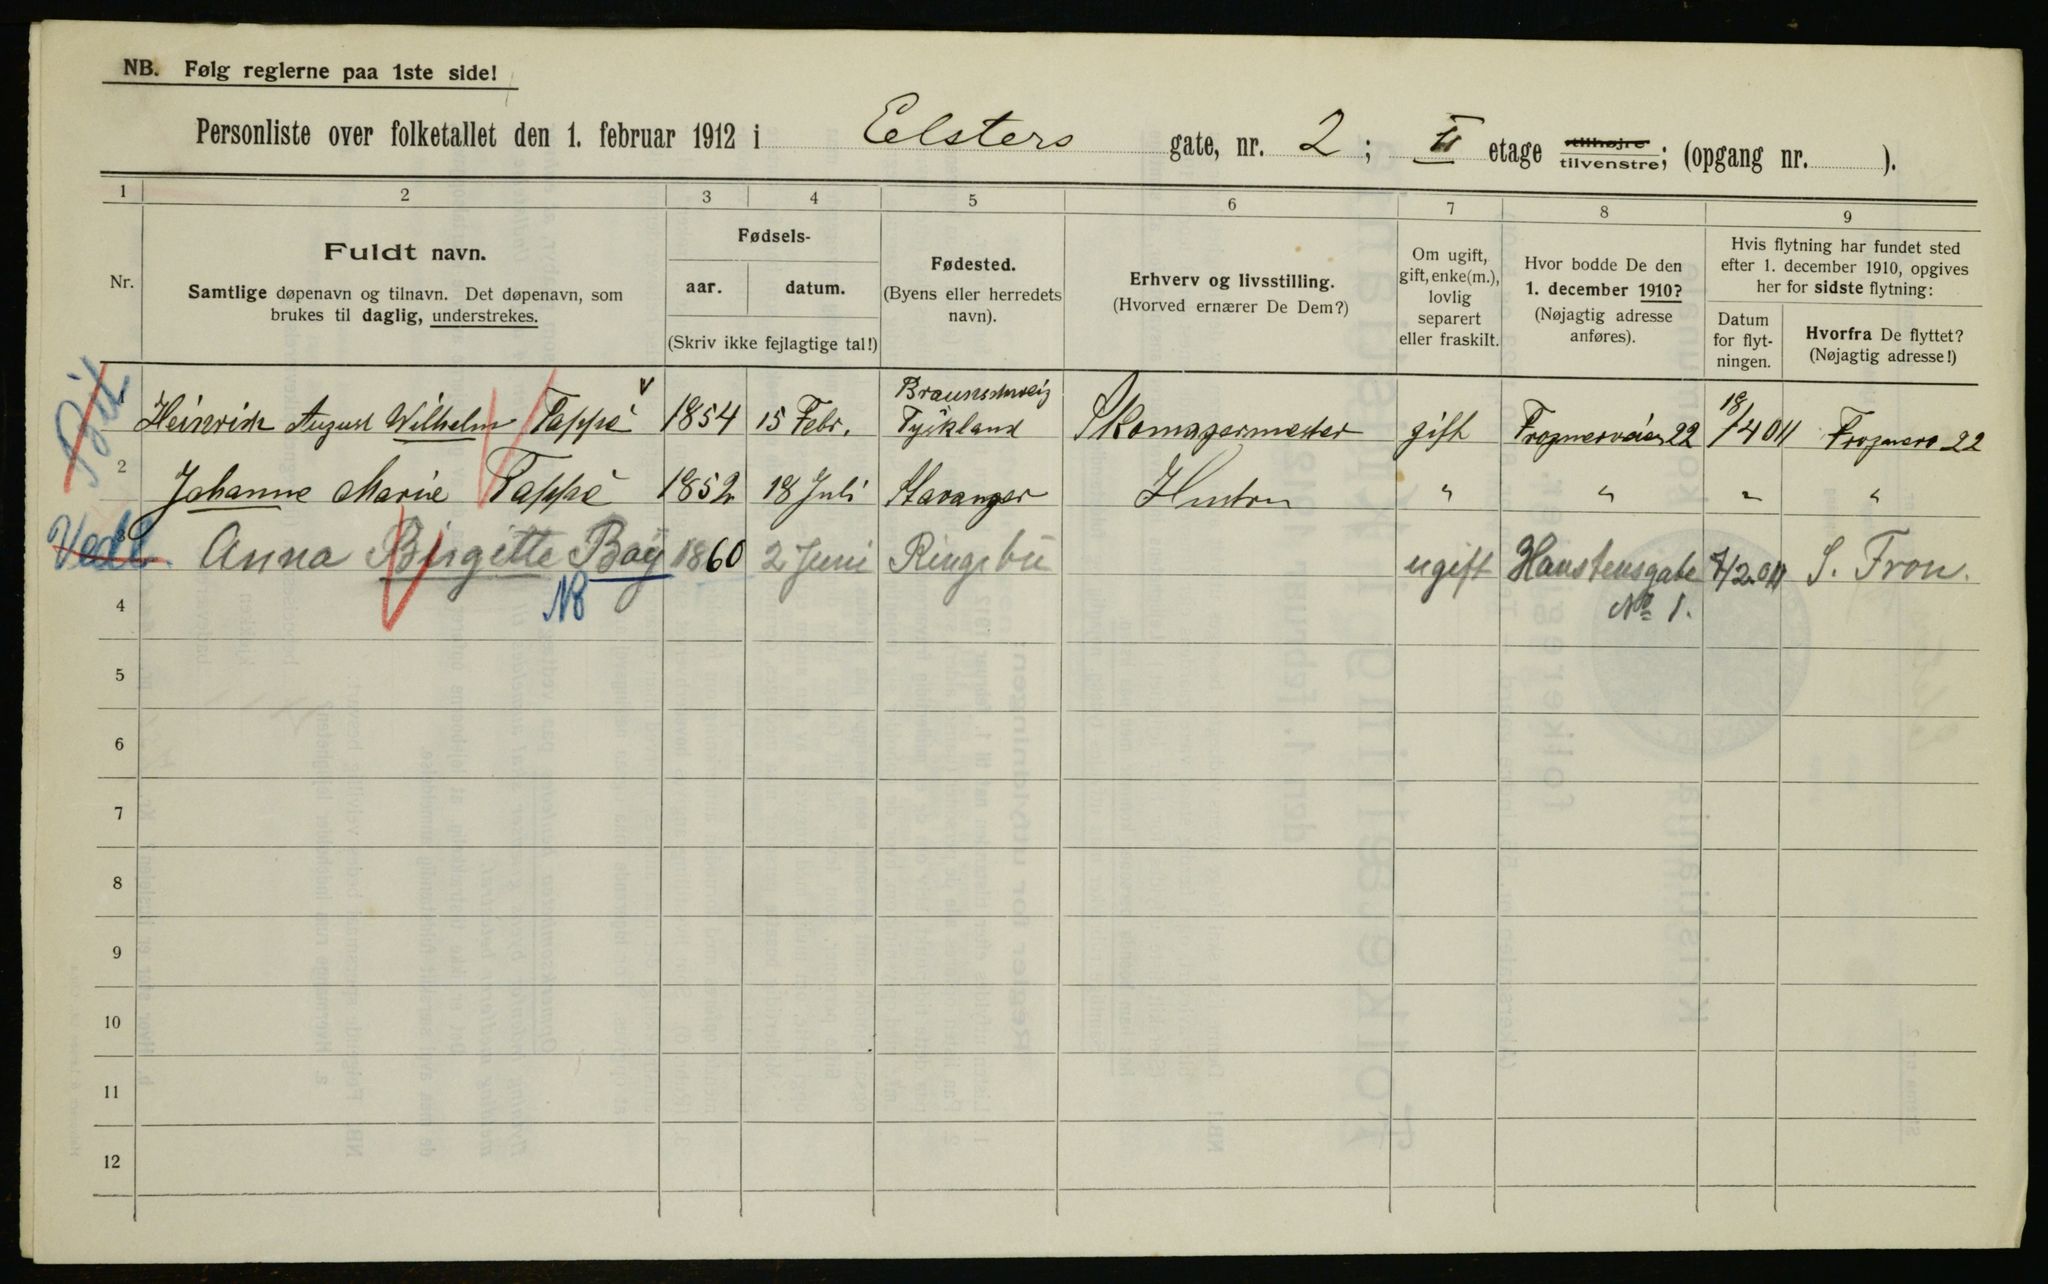 NB. Følg reglerne paa 1ste side!
Personliste over folketallet den 1. februar 1912 i Eilsters gate, nr. 2; II etage tilhøjre tilvenstre; (opgang nr. ).
1 2 3 4 5 6 7 8 9
Nr.
Fuldt navn.
Samtlige døpenavn og tilnavn. Det døpenavn, som
brukes til daglig, understrekes.
Fødsels-
aar. datum.
(Skriv ikke fejlagtige tal!)
Fødested.
(Byens eller herredets
navn).
Erhverv og livsstilling.
(Hvorved ernærer De Dem?)
Om ugift,
gift, enke(m.),
lovlig
separert
eller fraskilt.
Hvor bodde De den
1. december 1910?
(Nøjagtig adresse
anføres).
Hvis flytning har fundet sted
efter 1. december 1910, opgives
her for sidste flytning:
Datum
for flyt-
ningen.
Hvorfra De flyttet?
(Nøjagtig adresse!)
1 Heinrich August Wilhelm Tappé 1854 15 Febr. Braunschweig Tyskland Skomagermester gift Frognerveien 22 18/4 011 Frognerv 22
2 Johanne Marie Tappé 1852 18 Juli Stavanger Hustru " " " "
3 Anna Birgitte Bøÿ 1860 2 Juni Ringebu ugift Hanstensgate No 1. 7/2.011 S. Fron.
NB
4
5
6
7
8
9
10
11
12